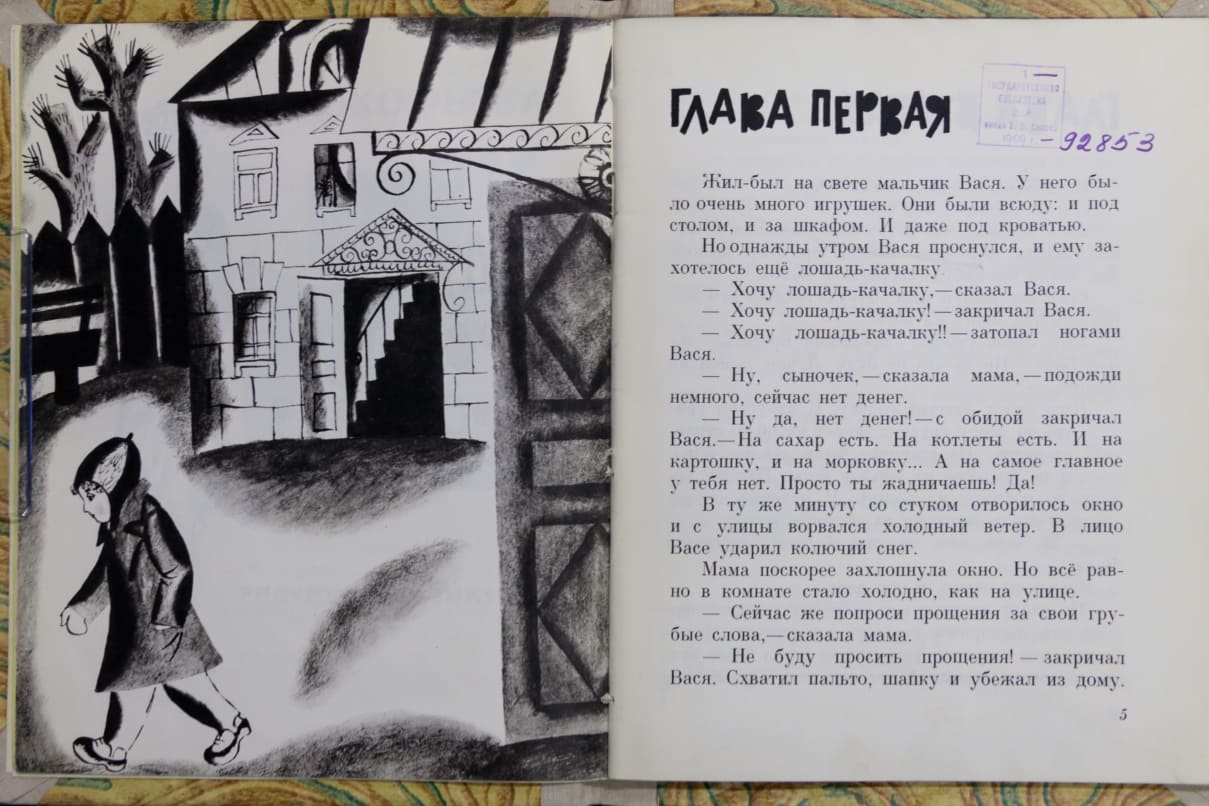 ГЛАВА ПЕРВАЯ
1 —
ГОСУДАРСТВЕННАЯ
БИБЛИОТЕКА
1969 г.
— 92853
Жил-был на свете мальчик Вася. У него бы-
ло очень много игрушек. Они были всюду: и под
столом, и за шкафом. И даже под кроватью.
Но однажды утром Вася проснулся, и ему за-
хотелось ещё лошадь-качалку.
— Хочу лошадь-качалку,—сказал Вася.
— Хочу лошадь-качалку!—закричал Вася.
— Хочу лошадь-качалку!!—затопал ногами
Вася.
— Ну, сыночек,—сказала мама,—подожди
немного, сейчас нет денег.
— Ну да, нет денег!—с обидой закричал
Вася.—На сахар есть. На котлеты есть. И на
картошку, и на морковку... А на самое главное
у тебя нет. Просто ты жадничаешь! Да!
В ту же минуту со стуком отворилось окно
и с улицы ворвался холодный ветер. В лицо
Васе ударил колючий снег.
Мама поскорее захлопнула окно. Но всё рав-
но в комнате стало холодно, как на улице.
— Сейчас же попроси прощения за свои гру-
бые слова,—сказала мама.
— Не буду просить прощения! — закричал
Вася. Схватил пальто, шапку и убежал из дому.
5